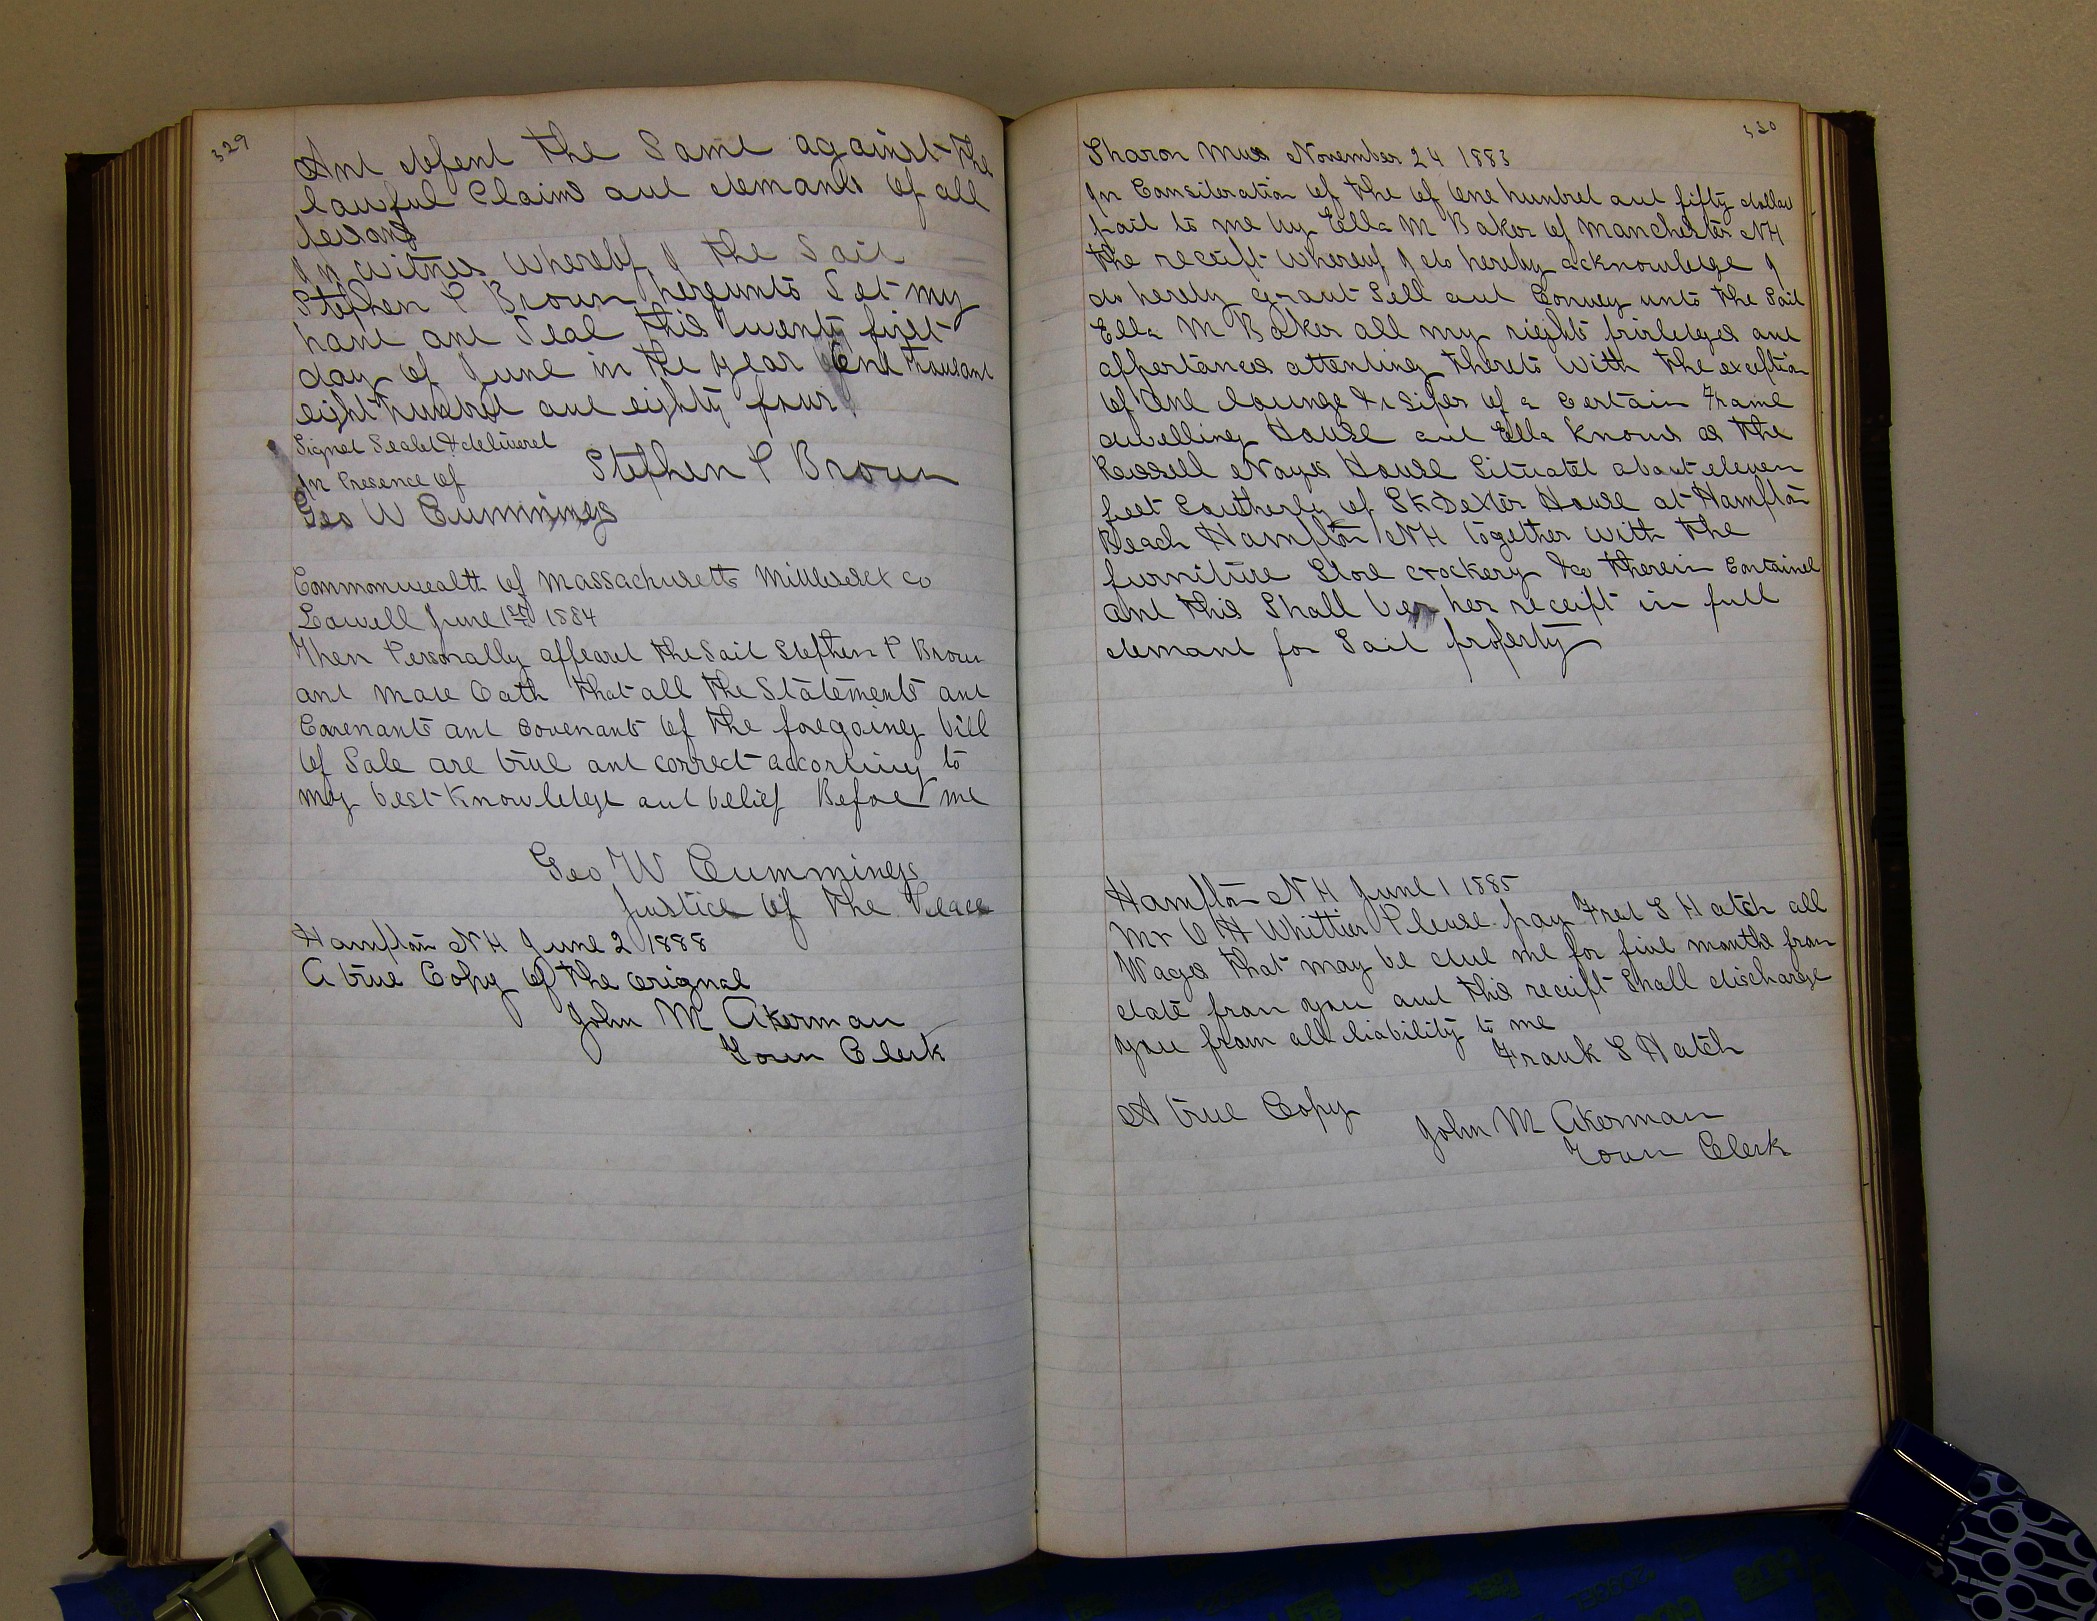 329
And defend the Same against the
lawful Claims and demands of all
Persons
In witness whereof I the Said
Stephen P Brown hereunto Set my
hand and Seal this twenty first
day of June in the year One thousand
eight hundred and eighty four
Signed Sealed & delivered
In Presence of Stephen P Brown
Geo W Cummings
Commonwealth of Massachusetts Middlesex co
Lowell June 1st 1884
Then Personally appeared the Said Stephen P Brown
and made Oath that all the Statements and
Covenants and covenants of the foregoing bill
of Sale are true and correct according to
my best Knowledge and belief Before me
Geo W Cummings
Justice of the Peace
Hampton NH June 2 1888
A true Copy of the orignal
John M Akerman
Town Clerk
330
Sharon Mass November 24 1883
In Consideration of the of One hundred and fifty dollars
paid to me by Ella M Baker of Manchester NH
the receipt whereof I do hereby acknowledge I
do hereby grant Sell and Convey unto the Said
Ella M Baker all my rights privledges and
appertances attending thereto with the exception
of One lounge of a certain Frame
dwelling House and Ella Known as the
Russell Noyes House Situated about eleven
feet Southerly of SK Dexter House at Hampton
Beach Hampton NH together with the
furniture Stove crockery &c therein contained
and this Shall be her receipt in full
demand for Said property
Hampton NH June 1 1885
Mr C H Whittier Please pay Fred S Hatch all
Wages that may be due me for five months from
date from you and this receipt Shall discharge
you from all liability to me
Frank S Hatch
A true Copy
John M Akerman
Town Clerk